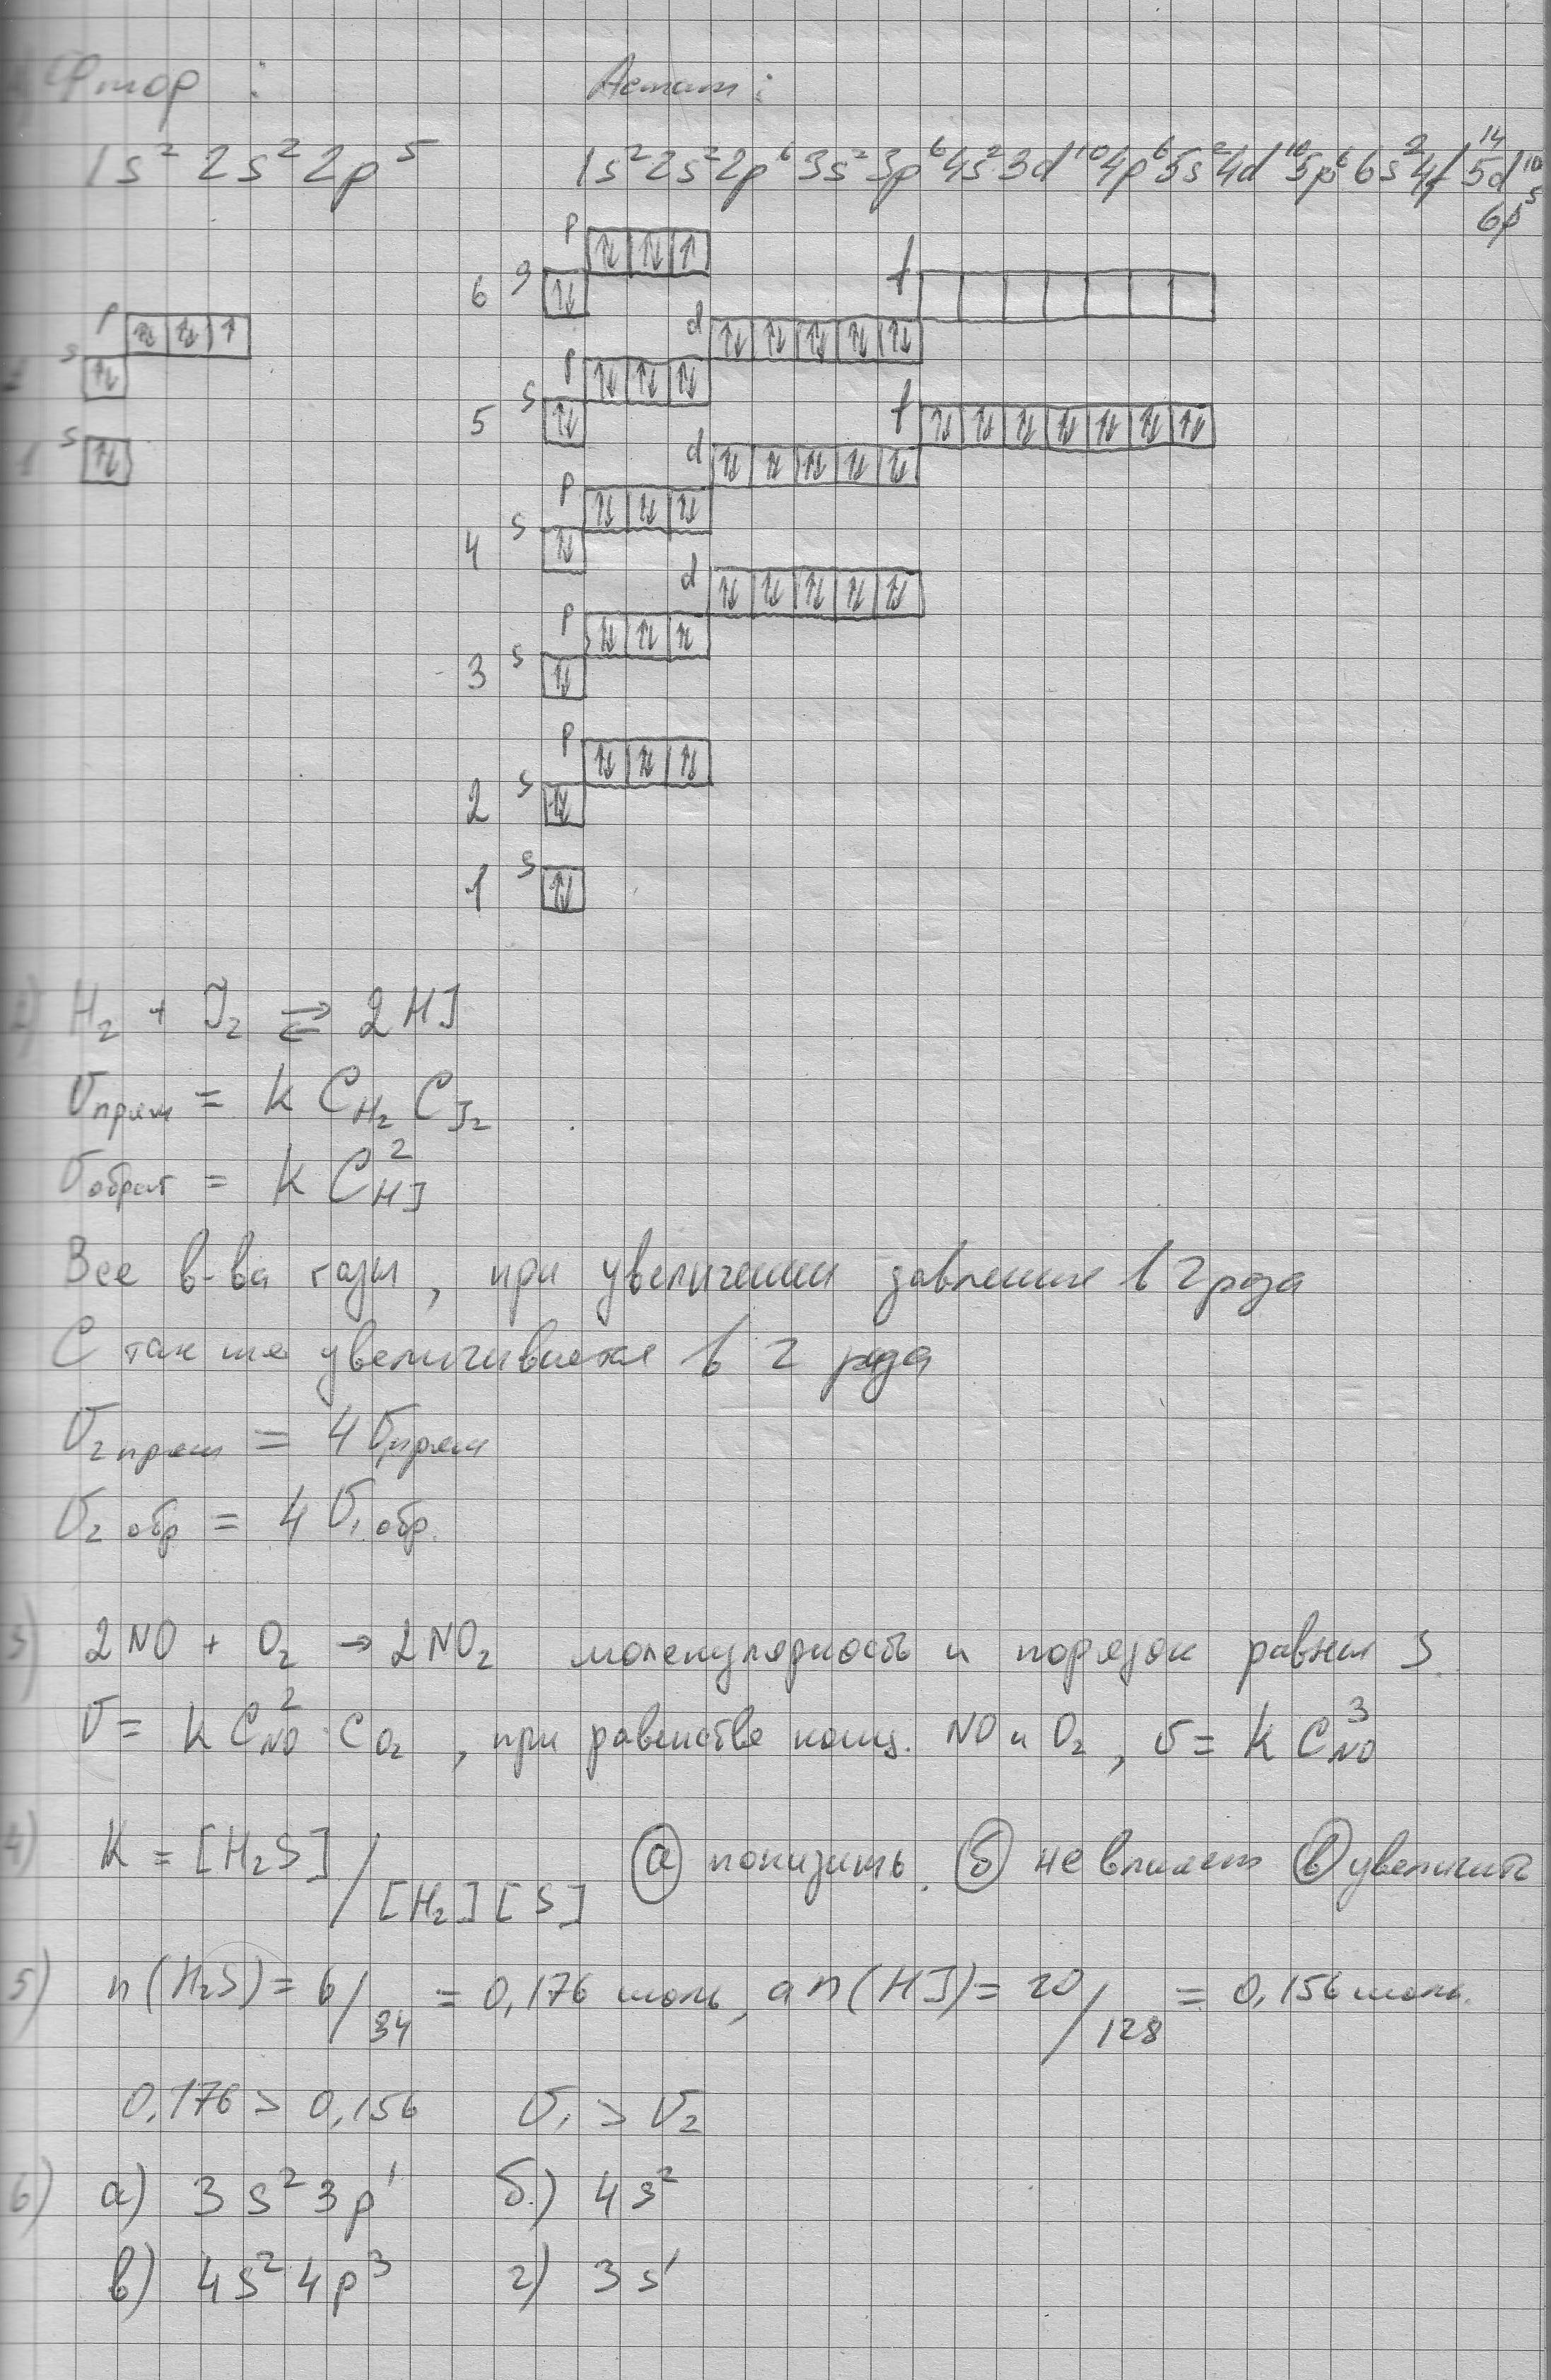 Фтор : Астат :
1s² 2s² 2p⁵ 1s²2s²2p⁶3s²3p⁶4s²3d¹⁰4p⁶5s²4d¹⁰5p⁶6s²4f¹⁴5d¹⁰
6p⁵
p ↑↓ ↑↓ ↑
6 s ↑↓ f
p ↑↓ ↑↓ ↑ d ↑↓ ↑↓ ↑↓ ↑↓ ↑↓
s ↑↓ p ↑↓ ↑↓ ↑↓
5 s ↑↓ f ↑↓ ↑↓ ↑↓ ↑↓ ↑↓ ↑↓ ↑↓
1 s ↑↓ d ↑↓ ↑↓ ↑↓ ↑↓ ↑↓
p ↑↓ ↑↓ ↑↓
4 s ↑↓
d ↑↓ ↑↓ ↑↓ ↑↓ ↑↓
p ↑↓ ↑↓ ↑↓
3 s ↑↓
p ↑↓ ↑↓ ↑↓
2 s ↑↓
1 s ↑↓
2) H₂ + J₂ ⇄ 2HJ
υпрям = k C_H₂ C_J₂
υобрат = k C²_HJ
Все в-ва газы, при увеличении давления в 2 раза
C так же увеличивается в 2 раза
υ₂ прям = 4 υ₁прям
υ₂ обр = 4 υ₁ обр.
3) 2NO + O₂ → 2NO₂ молекулярность и порядок равны 3.
υ = k C²_NO · C_O₂, при равенстве конц. NO и O₂, υ = k C³_NO
4) K = [H₂S] / [H₂][S] а понизить. б не влияет в увеличить
5) n(H₂S) = 6/34 = 0,176 моль, а n(HJ) = 20/128 = 0,156 моль.
0,176 > 0,156 υ₁ > υ₂
6) а) 3s²3p¹ б.) 4s²
в) 4s²4p³ г) 3s¹